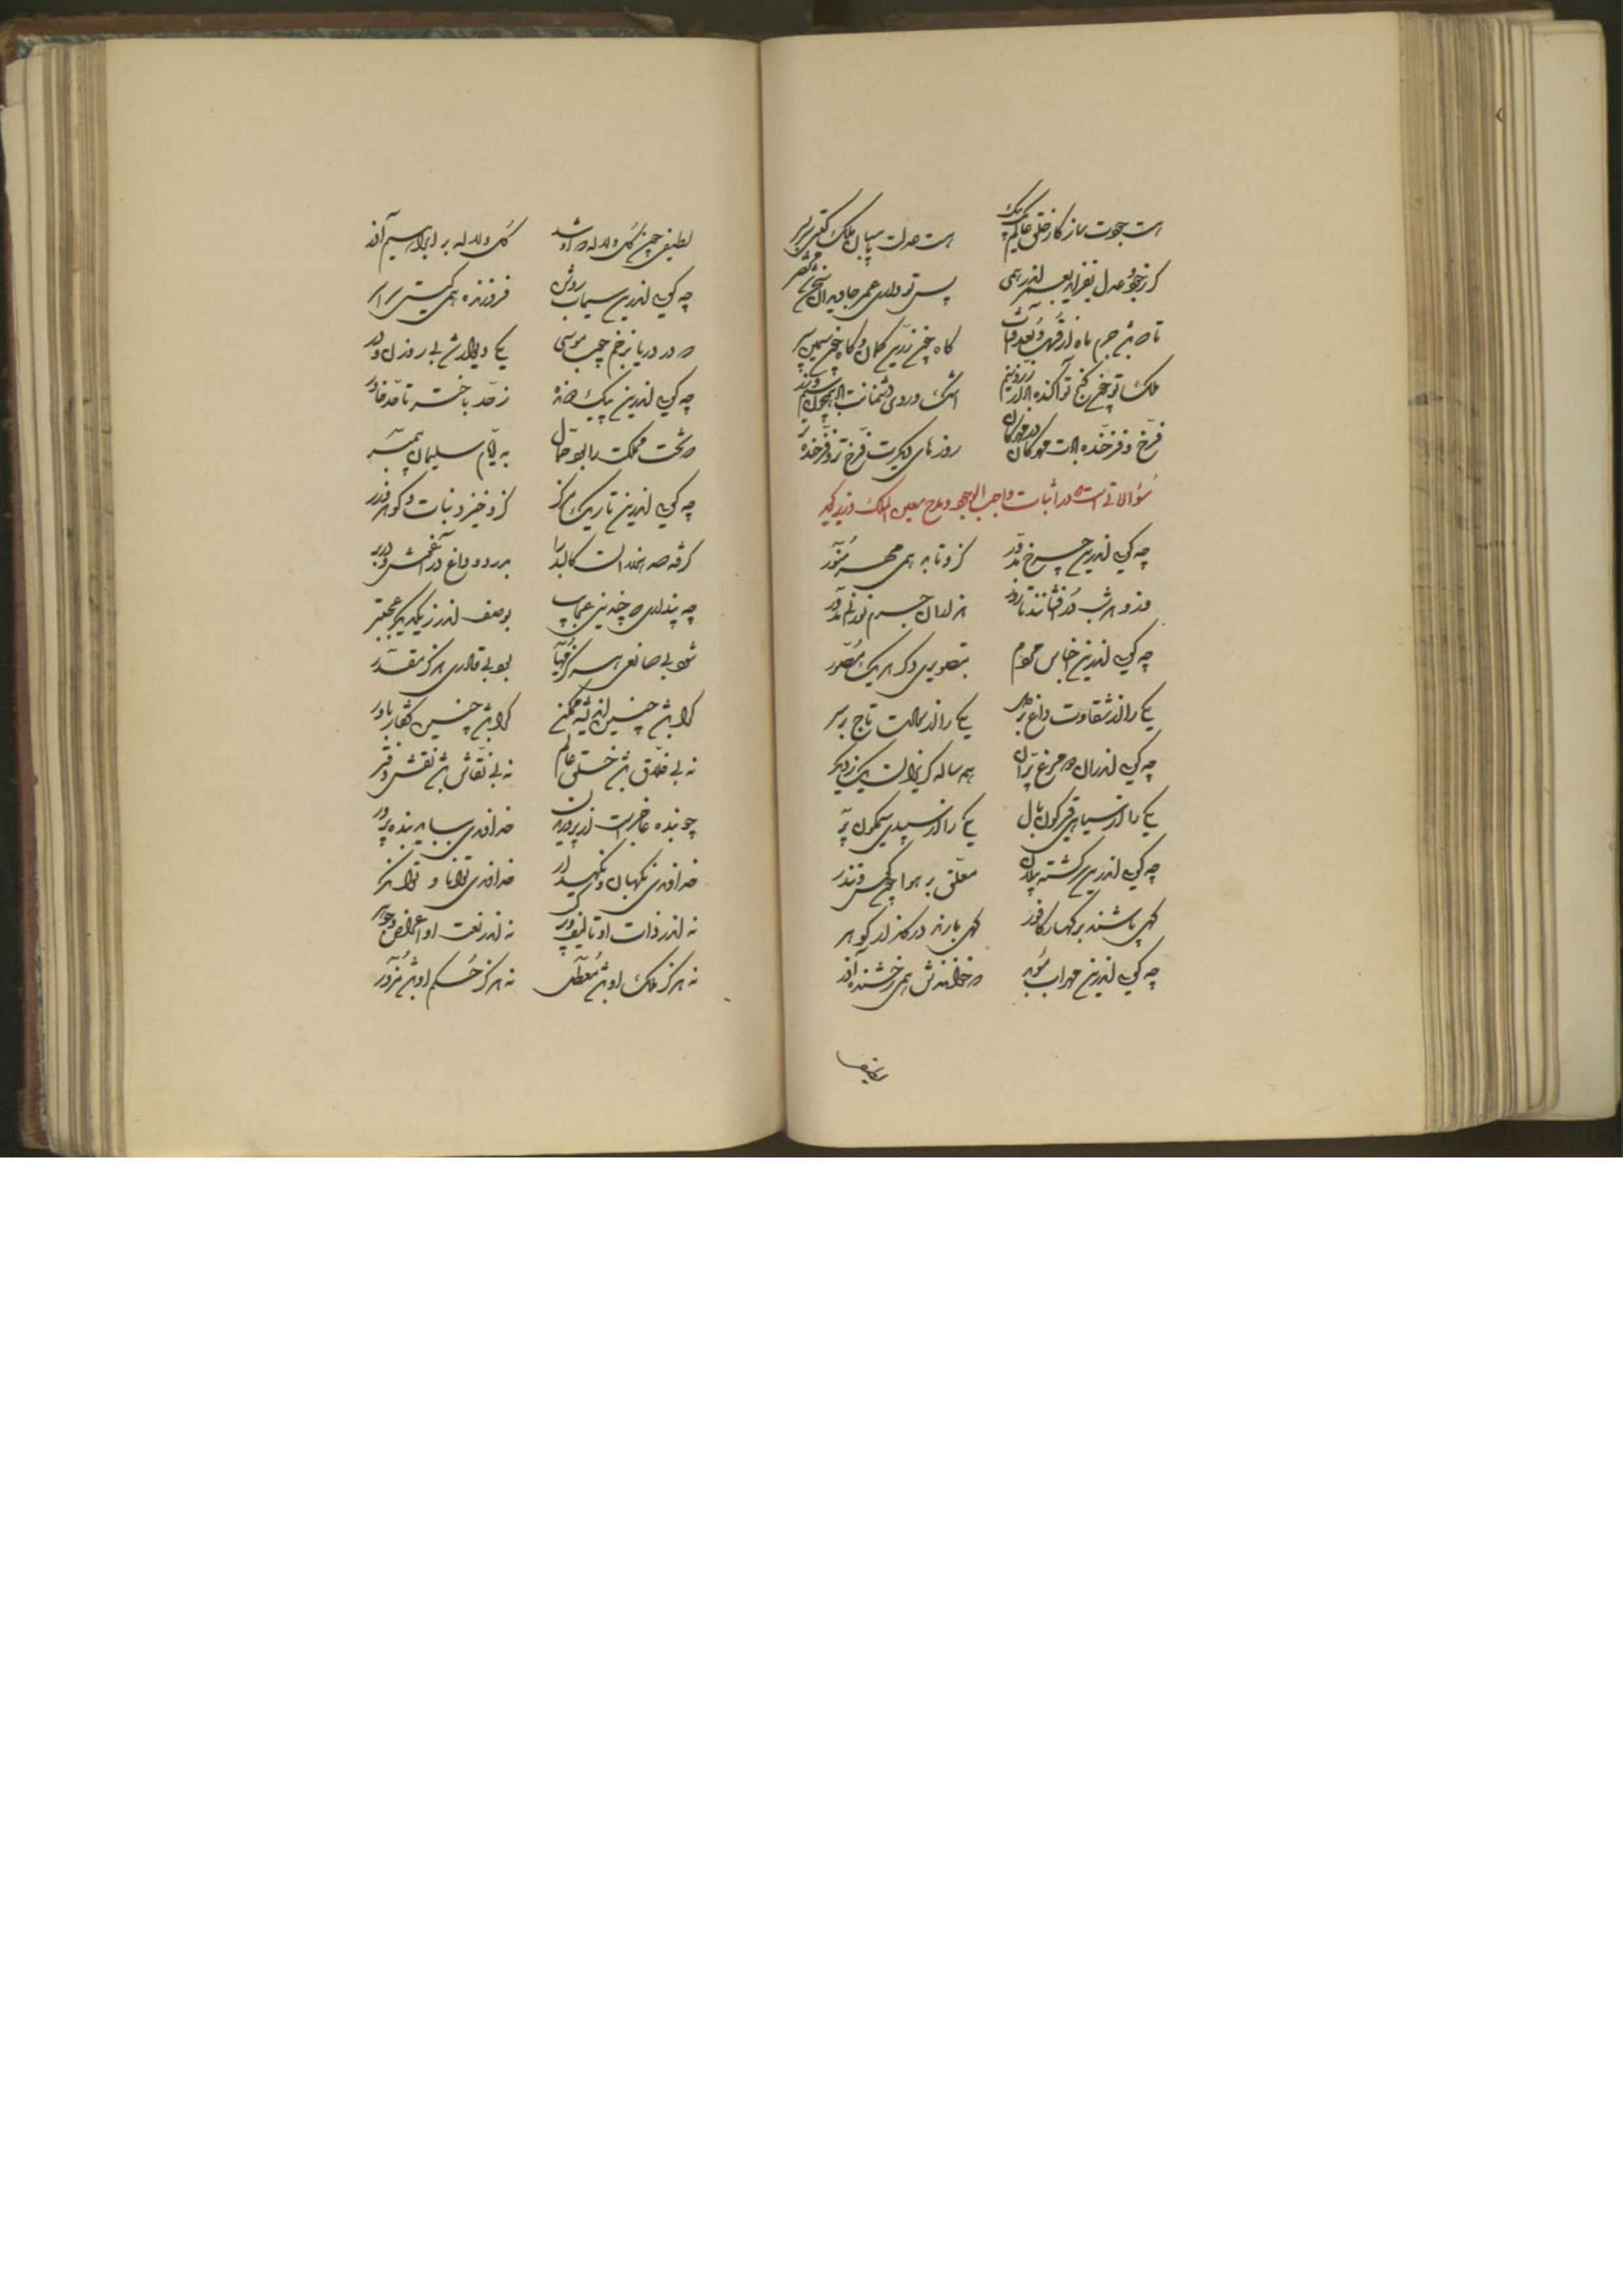 است جودت ساز کار خلق عالم یک بیک است عدلت پاسبان ملک گیتی سر بسر
گر ز جود و عدل بفزاید بعمر اندر همی پس تو داری عمر جاویدان
تا که باشد جرم ماه از قرب و بعد آفتاب گاه چون زرین کمان و گاه چون سیمین سپر
ملک تو چون گنج تو آکنده باد از زر و سیم اشک و روی دشمنانت باد همچون سیم و زر
فرخ و فرخنده بادت مهرگان روزهای دیگرت فرخ‌تر و فرخنده‌تر
سؤالاتی است که در اثبات واجب الوجود و مدح معین الملک وزیر گوید
چه گویی اندرین چرخ مدور کزو تابد همی مهر منور
هر شب درفشانند تا روز هزاران جرم نورانی
چه گویی اندرین اجناس مردم بتصویری دگر هر یک مصور
یکی را از شقاوت داغ بر دل یکی را از سعادت تاج بر سر
چه گویی اندران دو مرغ پران همه ساله گریزان یک ز دیگر
یکی را از سیاهی قیرگون بال یکی را از سپیدی سیمگون پر
چه گویی اندرین سرگشته پیلان معلق بر هوا چون
گهی پاشند بر کهسار کافور گهی بارند در گلزار گوهر
چه گویی اندرین که خوانندش همی رخشنده آذر
لطیفی چون گل و لاله که او شد گل و لاله بر ابراهیم آزر
چه گویی اندرین سیماب روشن فروزنده همی گیتی سراسر
که در دریا بزخم چوب موسی یکی دیوار شد بی روزن و در
چه گویی اندرین پیک ز حد باختر تا حد خاور
که تخت مملکت را بود حمال به ایام سلیمان پیمبر
چه گویی اندرین تاریک مرکز کزو خیزد نبات و گوهر و زر
گرفته صد هزاران کالبد را
چه پنداری که چندینی عجایب بوصف اندر ز یکدیگر عجبتر
شود بی صانعی هرگز مهیا بود بی قادری هرگز مقدر
کرا باشد چنین اندیشه ممکن کرا باشد چنین گفتار باور
نه بی خلاق باشد خلق عالم نه بی نقاش باشد نقش دفتر
چو بنده عاجز است از پروریدن خداوندی بباید بنده پرور
خداوندی نگهبان و نگهدار خداوندی توانا و توانگر
نه اندر ذات او تالیف و ترکیب نه اندر نعت او اعراض و جوهر
نه هرگز ملک او باشد معطل نه هرگز حکم او باشد مزور